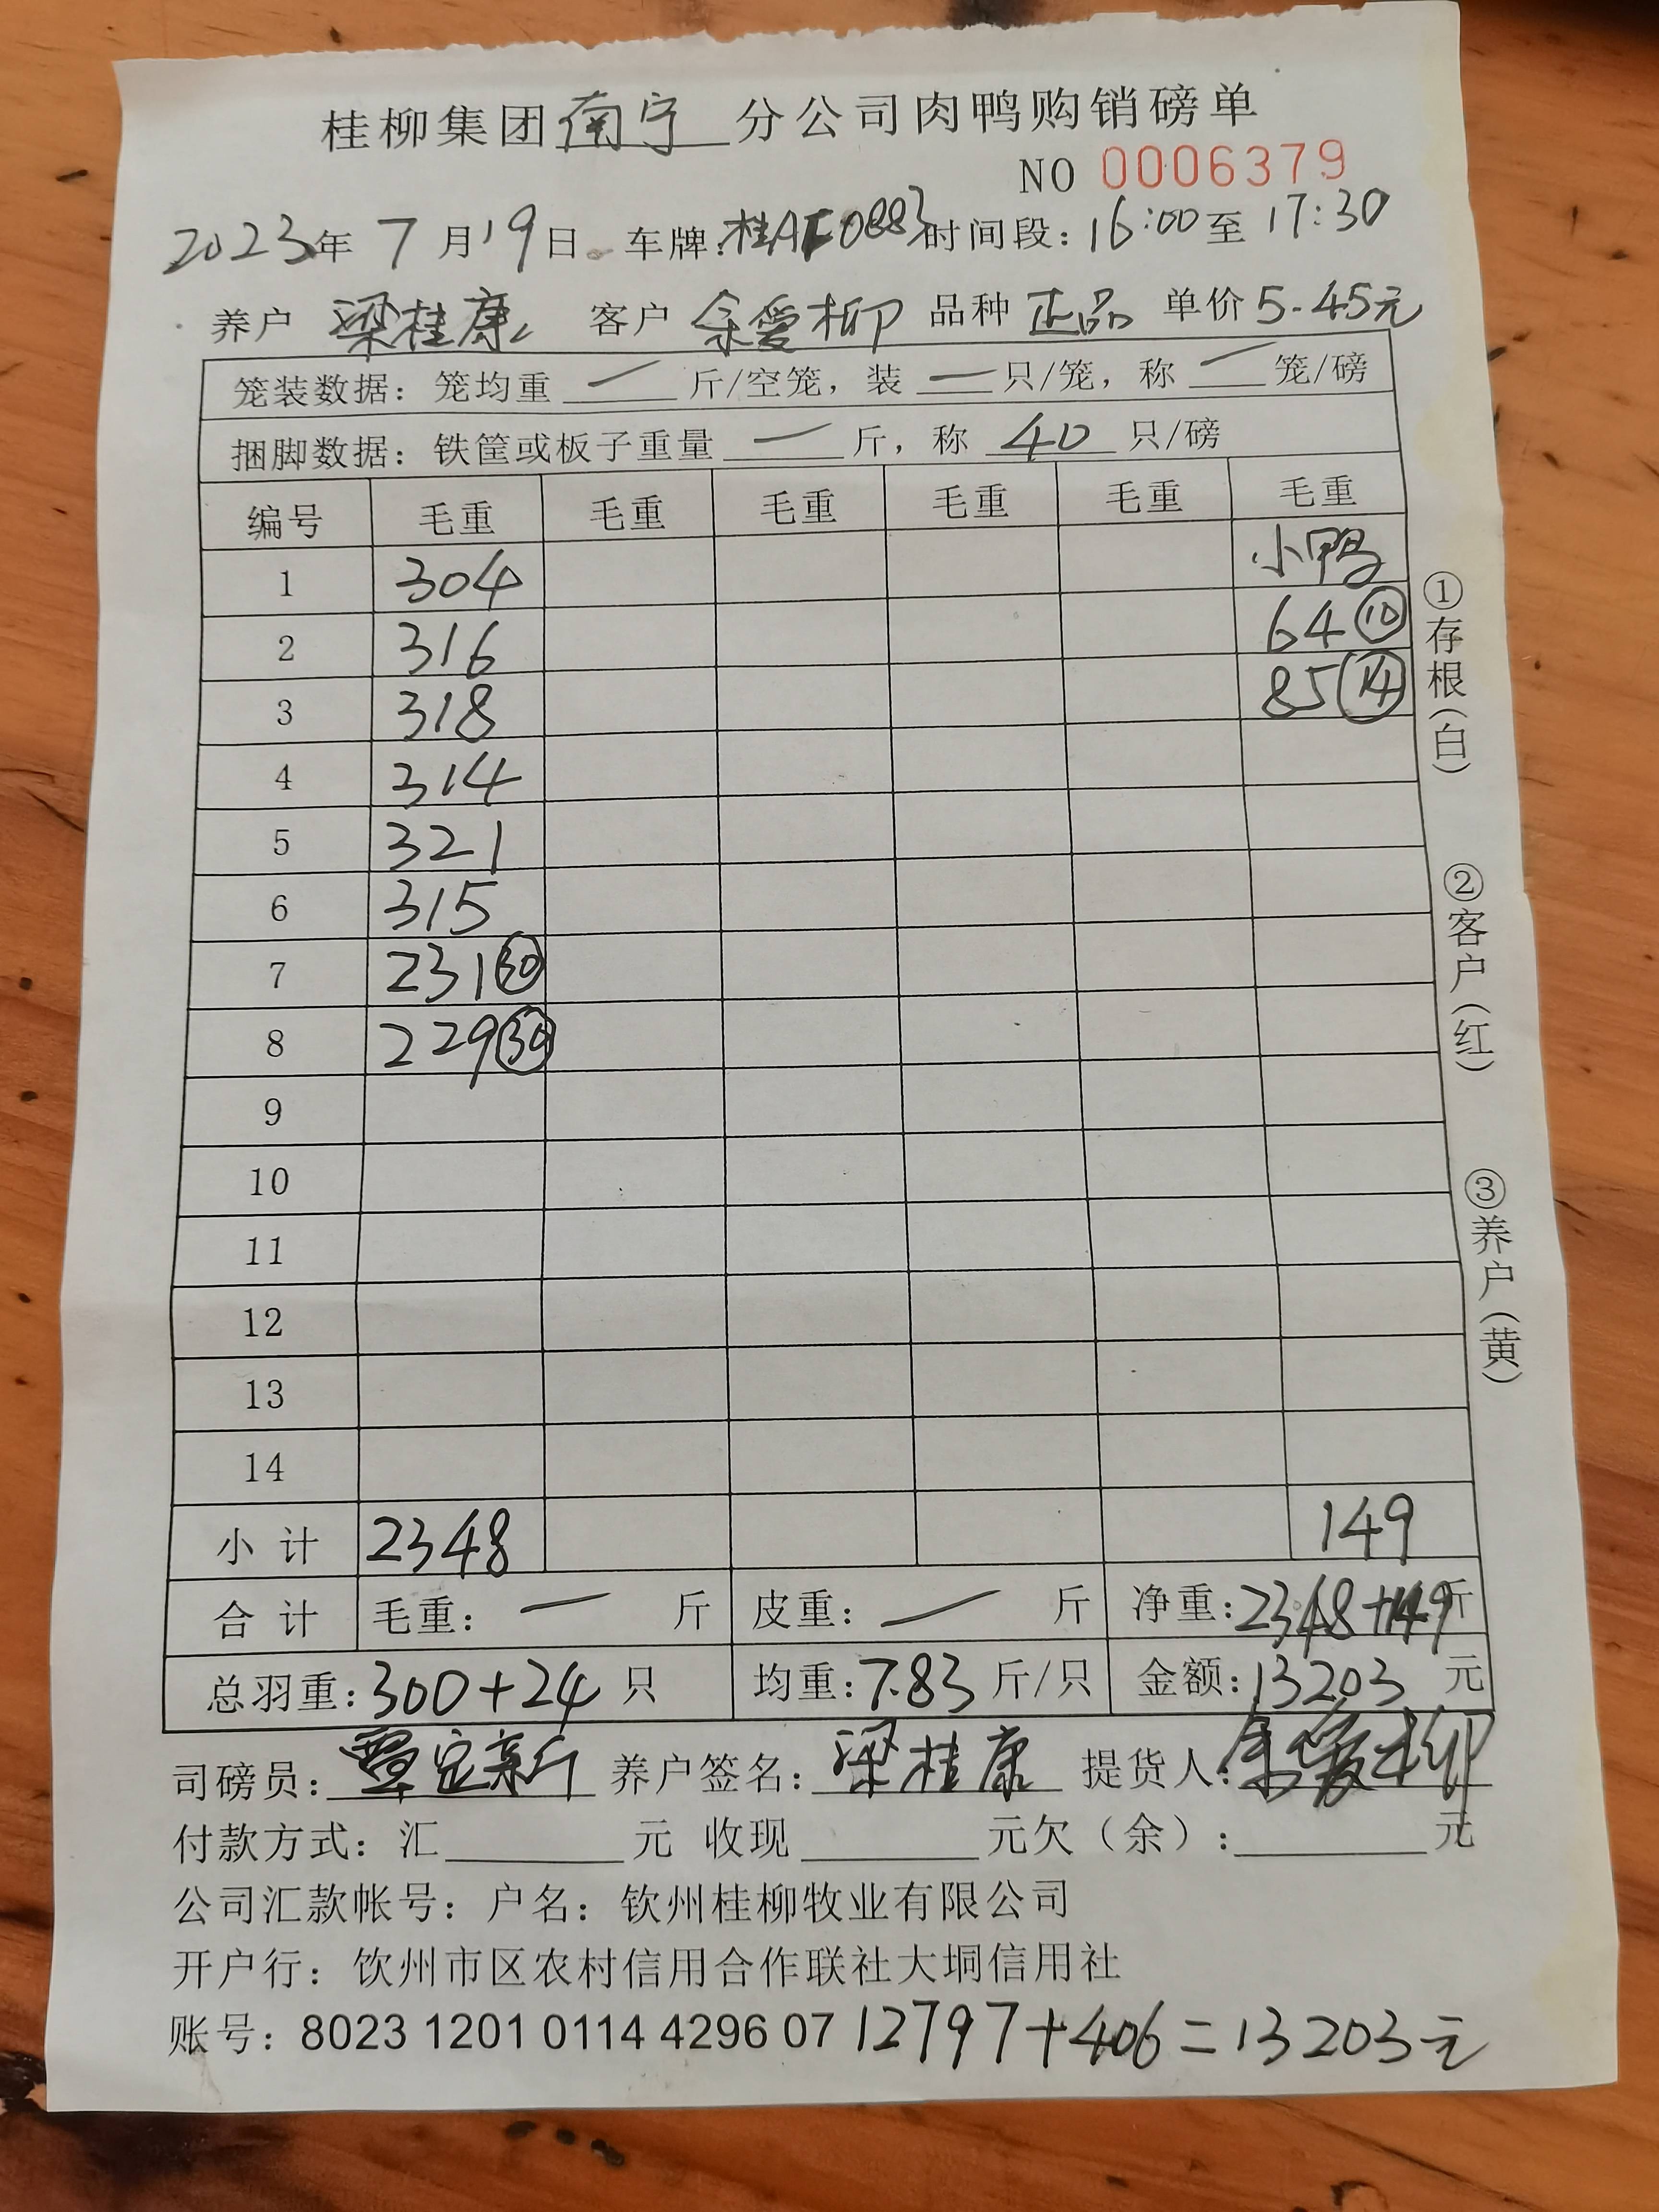 桂柳集团南宁分公司肉鸭购销磅单
NO 0006379
2023年 7 月19日 车牌: 时间段: 16:00至 17:30
养户 梁桂康 客户 余爱柳 品种 正品 单价 5.45元
笼装数据: 笼均重 — 斤/空笼, 装 — 只/笼, 称 — 笼/磅
捆脚数据: 铁筐或板子重量 — 斤, 称 40 只/磅
编号 毛重 毛重 毛重 毛重 毛重 毛重
1 304 小鸭
2 316 64 ⑩
3 318 85 ⑭
4 314
5 321
6 315
7 231 ㉚
8 229 ㉚
9
10
11
12
13
14
小 计 2348 149
合 计 毛重: — 斤 皮重: — 斤 净重: 2348+149斤
总羽重: 300+24 只 均重: 7.83 斤/只 金额: 13203 元
司磅员: 覃定新 养户签名: 梁桂康 提货人: 余爱柳
付款方式: 汇 元 收现 元欠（余）: 元
公司汇款帐号: 户名: 钦州桂柳牧业有限公司
开户行: 饮州市区农村信用合作联社大垌信用社
账号: 8023 1201 0114 4296 07 12797+406=13203元
①存根(白)
②客户(红)
③养户(黄)